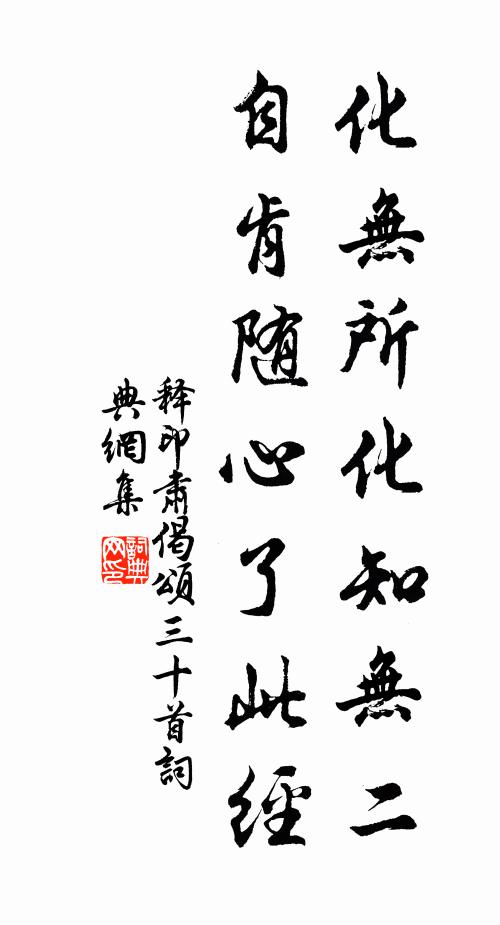 化無所化知無二
自肯随心了此經
释印肃偈頌三十首詞
典網集
詞典
网印